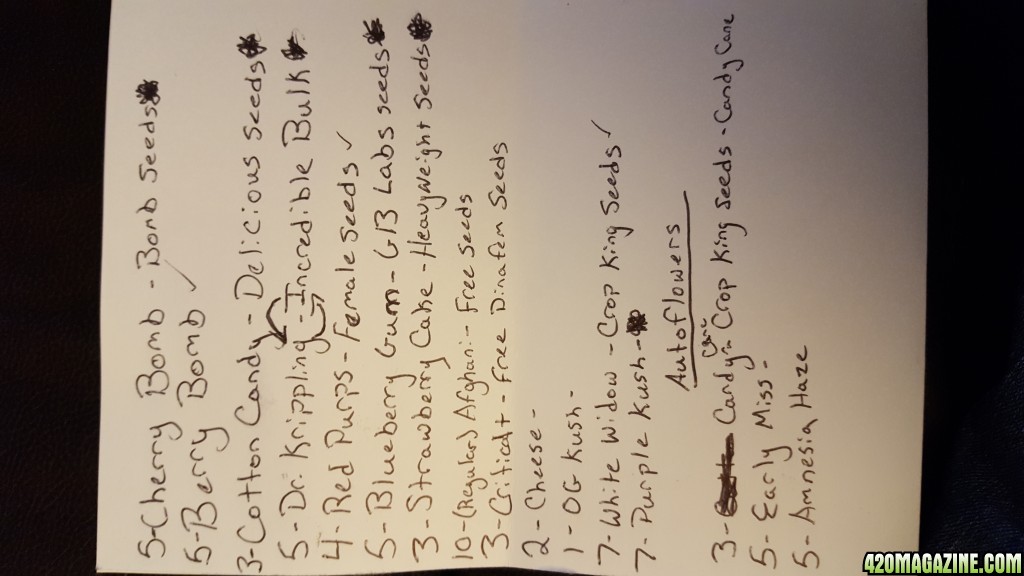 5-Cherry Bomb - Bomb Seeds
5-Berry Bomb ✓
3-Cotton Candy - Delicious Seeds
5-Dr. Krippling - Incredible Bulk
4-Red Purps - Female Seeds ✓
5-Blueberry Gum - GB Labs seeds
3-Strawberry Cake - Heavyweight Seeds
10-(Regular) Afghani - Free seeds
3-Critical+ - Free Dinafem Seeds
2-Cheese -
1-OG Kush -
7-White Widow - Crop King Seeds ✓
7-Purple Kush -
Autoflowers
3- Candy Cane Crop King Seeds - Candy Cane
5-Early Miss -
5-Amnesia Haze
420MAGAZINE.COM